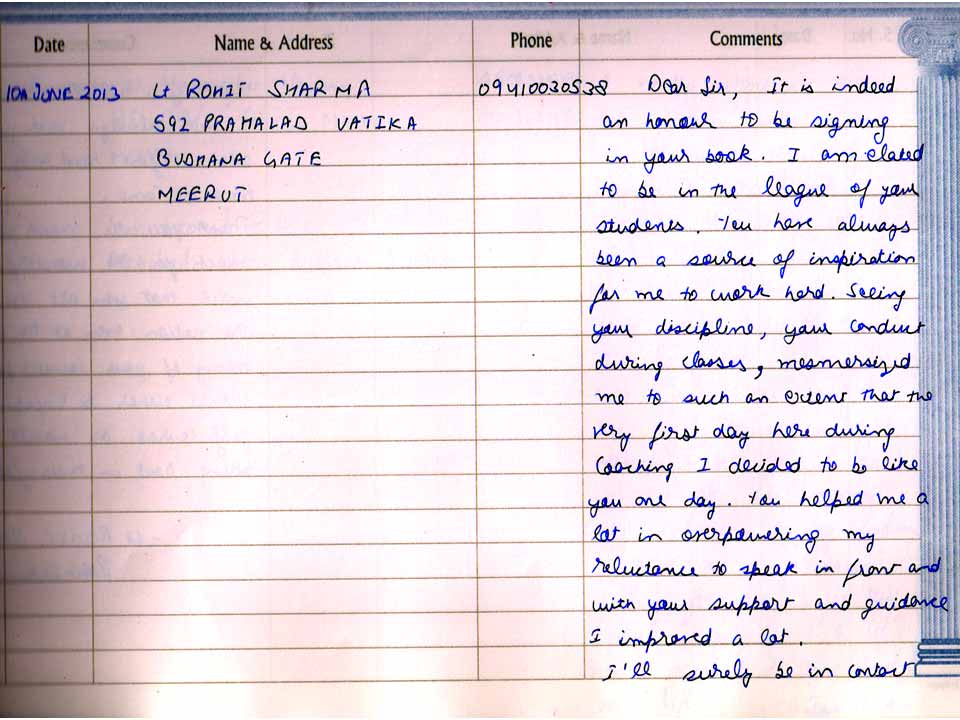 Date Name & Address Phone Comments
10th JUNE 2013 Lt ROHIT SHARMA 09410030538 Dear Sir, It is indeed
592 PRAHALAD VATIKA an honour to be signing
BUDHANA GATE in your book. I am elated
MEERUT to be in the league of your
students. You have always
been a source of inspiration
for me to work hard. Seeing
your discipline, your conduct
during classes, mesmersized
me to such an extent that the
very first day here during
Coaching I decided to be like
you one day. You helped me a
lot in overpowering my
reluctance to speak in front and
with your support and guidance
I improved a lot.
I'll surely be in contact